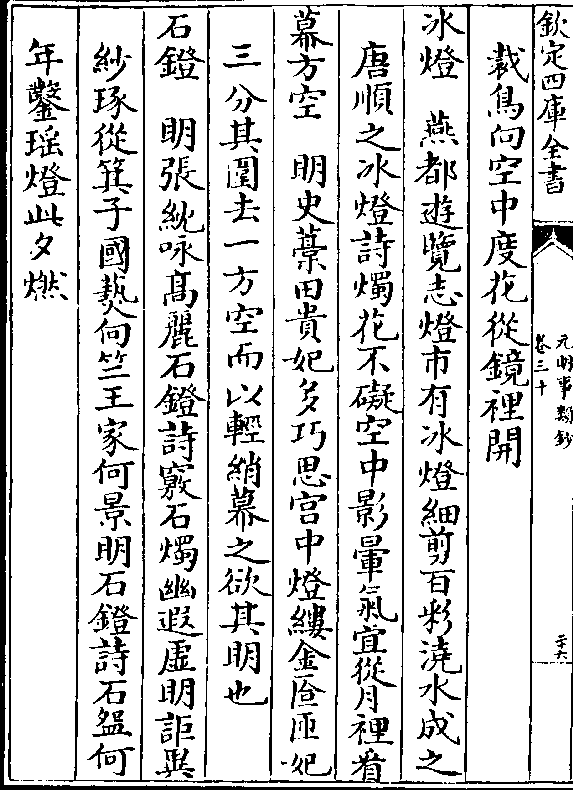 欽定四庫全書
元明事類鈔
卷三十
二十六
裁鳥向空中度花從鏡裡開
冰燈　燕都遊覽志燈市有冰燈細剪百彩澆水成之
唐順之冰燈詩燭花不礙空中影暈氣宜從月裡看
幕方空　明史藁田貴妃多巧思宫中燈縷金匼匝妃
三分其圍去一方空而以輕綃幕之欲其明也
石鐙　明張紞咏髙麗石鐙詩竅石燭幽遐虚明詎異
紗琢從箕子國爇向竺王家何景明石鐙詩石盌何
年鑿瑶燈此夕燃